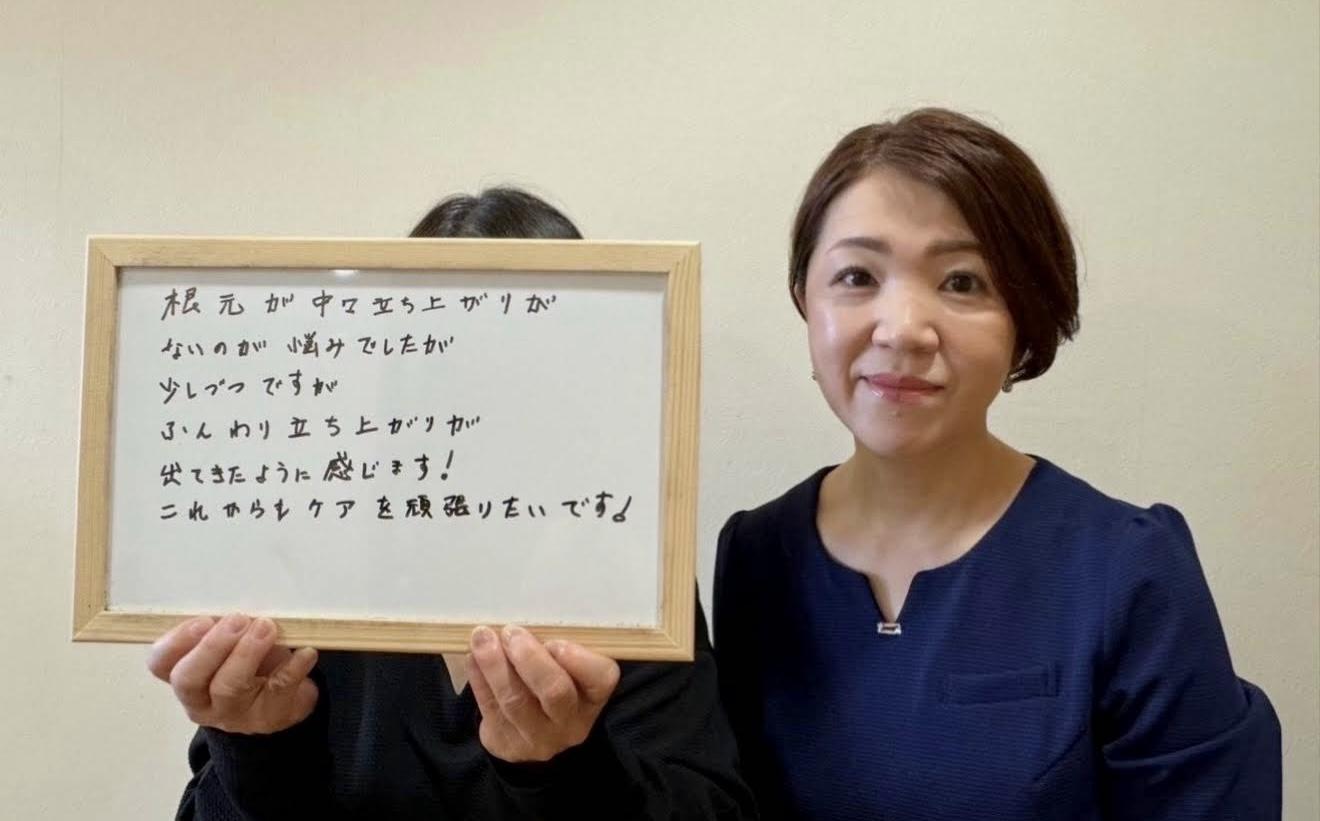 根元が中々立ち上がりが
ないのが悩みでしたが
少しづつですが
ふんわり立ち上がりが
出てきたように感じます!
これからもケアを頑張りたいです!